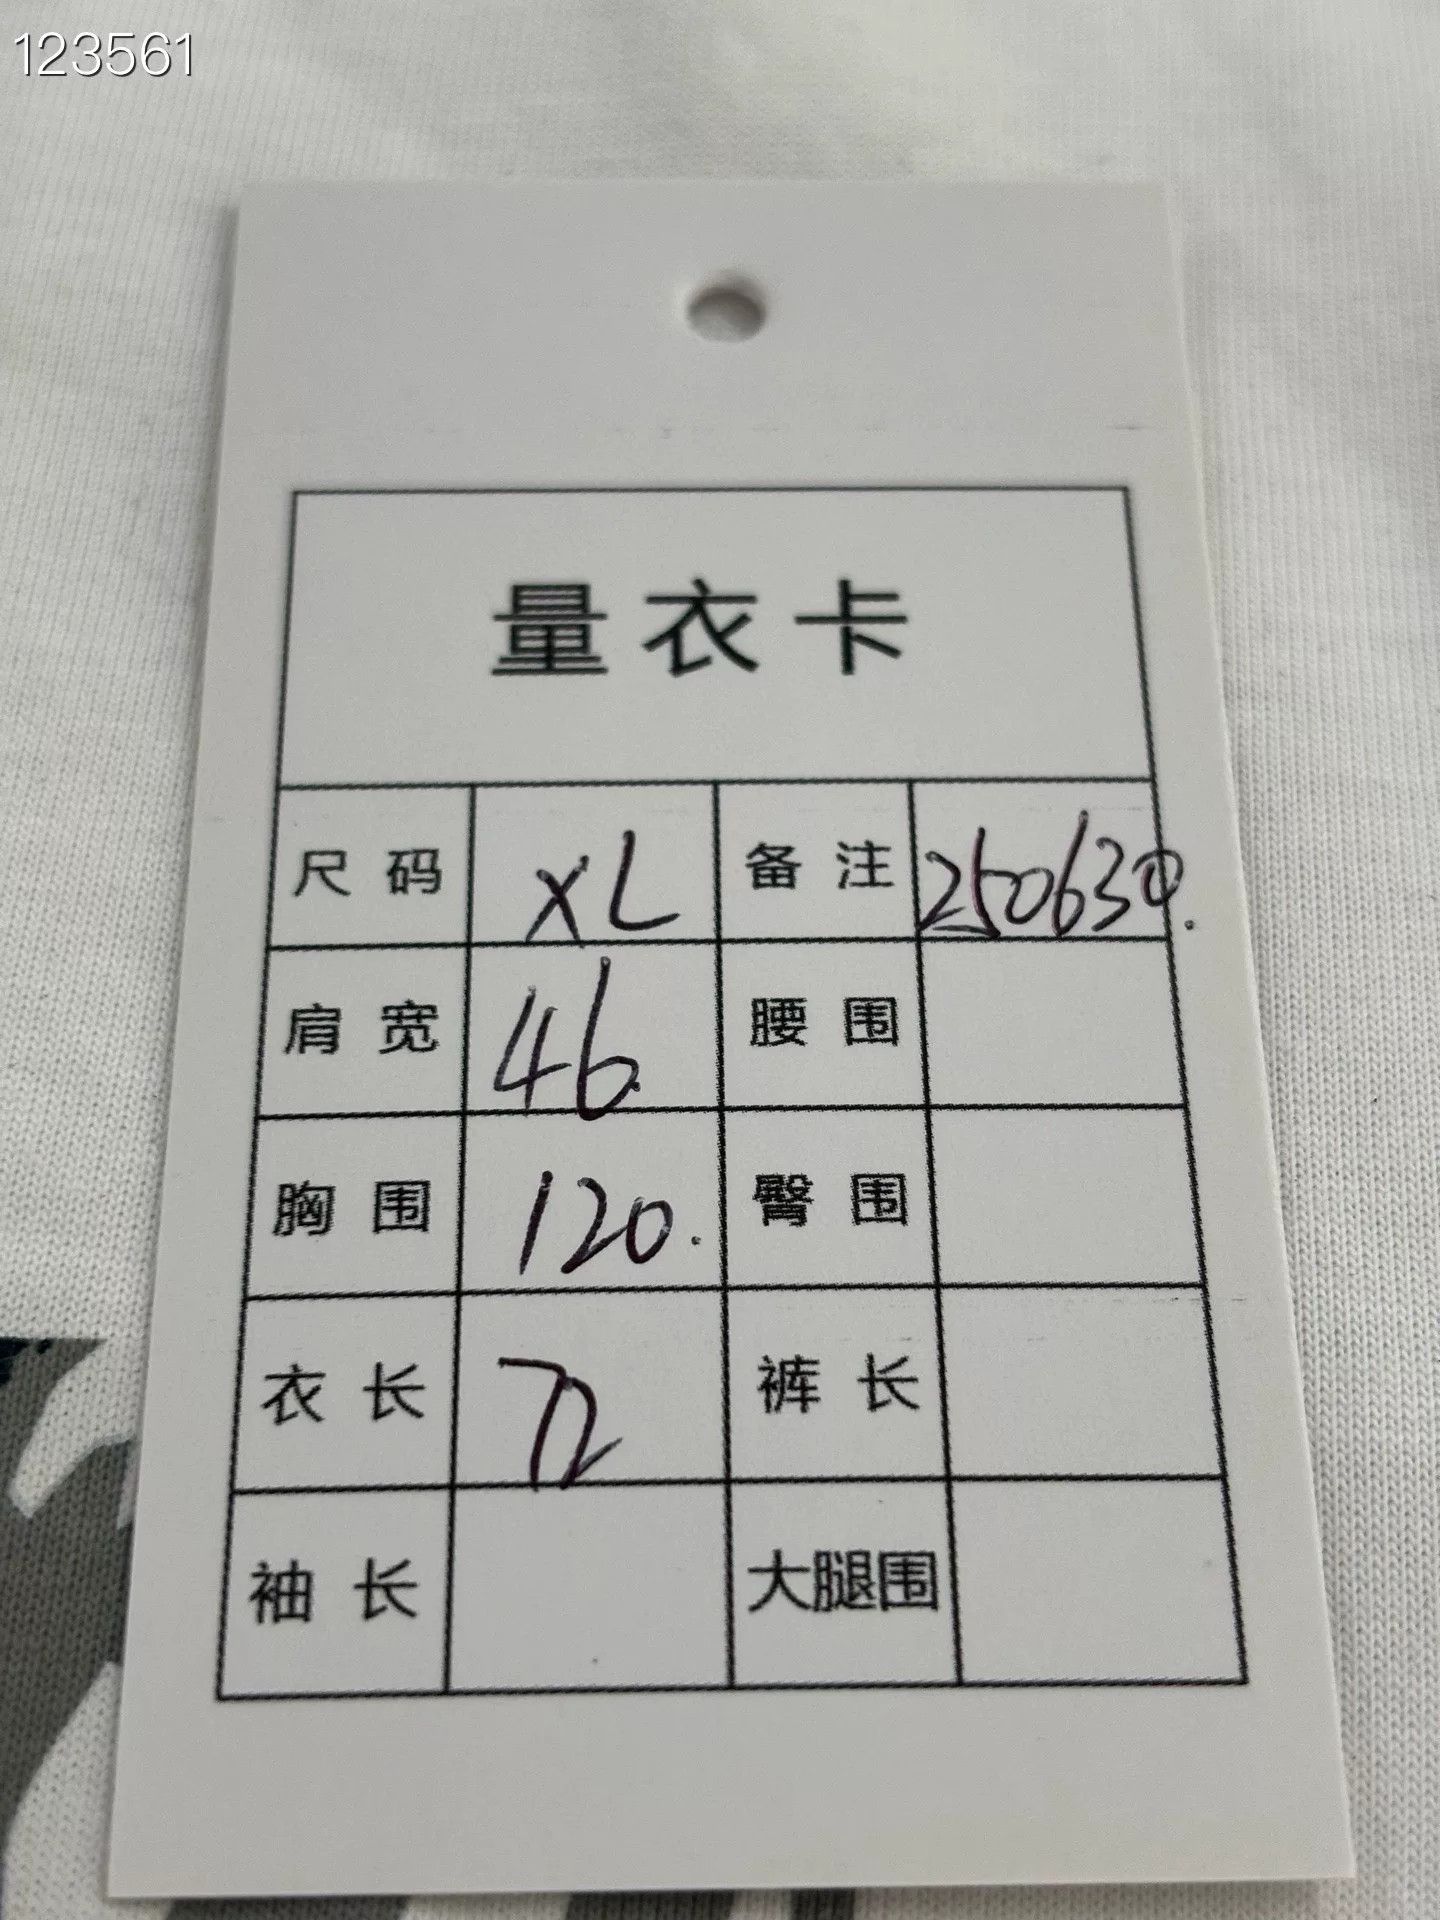 123561
量衣卡
尺码 XL 备注 250630.
肩宽 46. 腰围
胸围 120. 臀围
衣长 72 裤长
袖长 大腿围